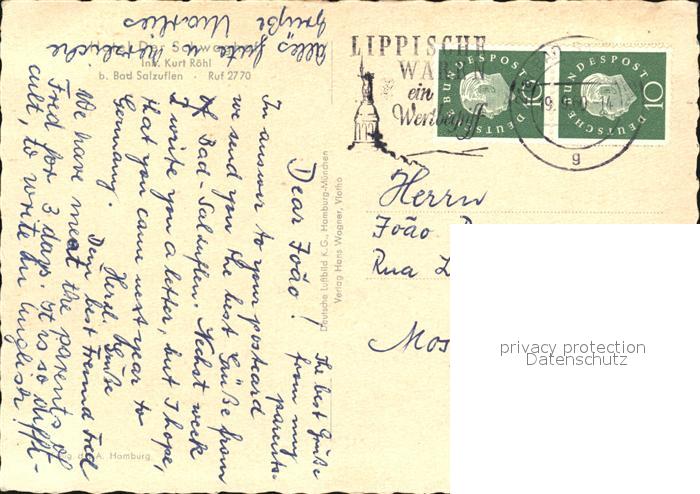 Inh. Kurt Röhl
b. Bad Salzuflen · Ruf 2770
Dear João!
In answer to your postcard
we send you the best Grüße from
of Bad-Salzuflen. Next week
I write you a letter, but I hope,
that you cam next year to
Germany.
Herzl. Grüße
Dein best Freund Fred
We have meat the parents of
Fred for 3 days. It is so diffi-
cult, to write in English!
Alles gute u. herzliche
Grüße Marlies
The best Grüße
from my
parents.
Deutsche Luftbild K.G., Hamburg-München
Verlag Hans Wagner, Vlotho
A. Hamburg
LIPPISCHE
WAREN
ein
Wertbegriff
DEUTSCHE BUNDESPOST
10
DEUTSCHE BUNDESPOST
10
g
Herrn
João
Rua
Mos
privacy protection
Datenschutz